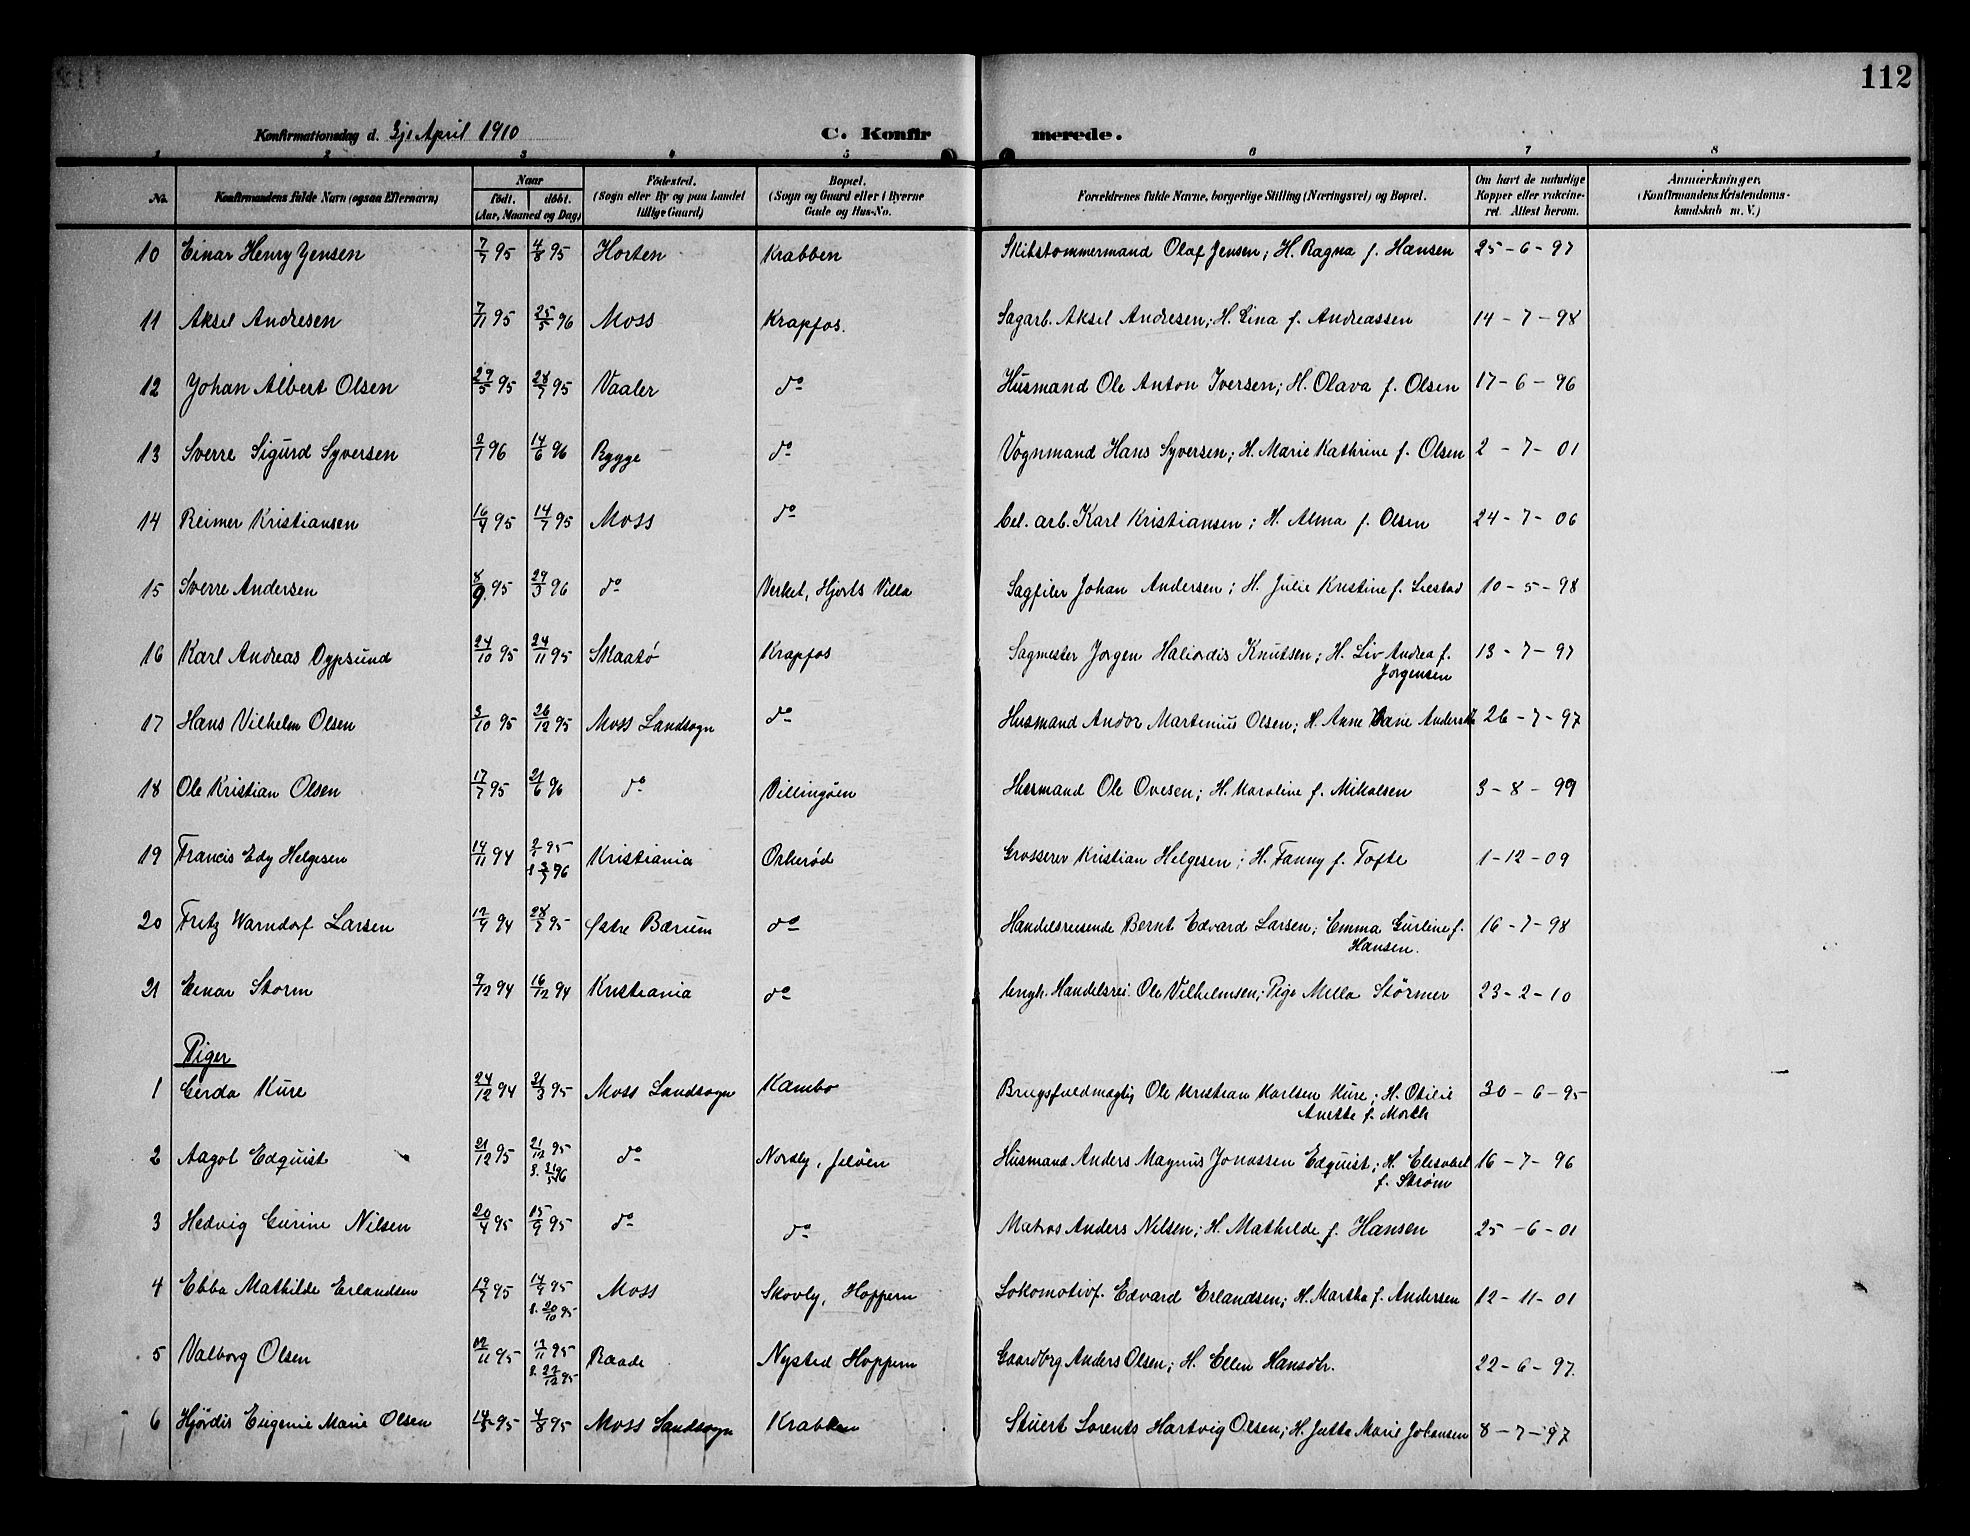 112
Konfirmationsdag d. 3je April 1910 C. Konfirmerede.
1 2 3 4 5 6 7 8
No. Konfirmandens fulde Navn (ogsaa Efternavn) Naar født. døbt. (Aar, Maaned og Dag) Fødested. (Sogn eller By og paa Landet tillige Gaard) Bopæl. (Sogn og Gaard eller i Byerne Gade og Hus-No. Forældrenes fulde Navne, borgerlige Stilling (Næringsvei) og Bopæl. Om havt de naturlige Kopper eller vakcineret. Attest herom. Anmærkninger. (Konfirmandens Kristendomskundskab m. V.)
10 Einar Henry Jensen 7/7 95 4/8 95 Horten Krabben Skibstømmermand Olaf Jensen; H. Ragna f. Hansen 25-6-97
11 Aksel Andresen 7/11 95 25/5 96 Moss Krapfos. Sagarb. Aksel Andresen; H. Lina f. Andreassen 14-7-98
12 Johan Albert Olsen 29/5 95 28/7 95 Vaaler do Husmand Ole Anton Iversen; H. Olava f. Olsen 17-6-96
13 Sverre Sigurd Syversen 2/1 96 14/6 96 Rygge do Vognmand Hans Syversen; H. Marie Kathrine f. Olsen 2-7-01
14 Reimer Kristiansen 16/4 95 14/7 95 Moss do Cel. arb. Karl Kristiansen; H. Alma f. Olsen 24-7-06
15 Sverre Andersen 8/9 95 29/3 96 do Verket, Hjorts Villa Sagfiler Johan Andersen; H. Julie Kristine f. Liestad 10-5-98
16 Karl Andreas Dypsund 24/10 95 24/11 95 Skaatø Krapfos Sagmester Jørgen Knutsen; H. Liv Andrea f.
Jørgensen 13-7-97
17 Hans Vilhelm Olsen 3/10 95 26/12 95 Moss Landsogn do Husmand Andor Martinius Olsen; H. Anne 26-7-97
18 Ole Kristian Olsen 17/7 95 21/6 96 do Billingøen Husmand Ole Ovesen; H. Karoline f. Mikalsen 3-8-99
19 Francis Edy Helgesen 14/11 94 Kristiania Orkerød Grosserer Kristian Helgesen; H. Fanny f. Tofte 1-12-09
20 Fritz Warndorf Larsen 94 95 Østre Bærum do Handelsreisende Bernt Edvard Larsen; Emma Gurline f.
Hansen. 16-7-98
21 Einar Storm 9/12 94 16/12 94 Kristiania do Ungk. Handelsrei. Ole Vilhelmsen; Pige Milla Størmer 23-2-10
Piger
1 Gerda Kure 24/12 94 31/3 95 Moss Landsogn Kambo Brugsfuldmægtig Ole Kristian Karlsen Kure; H. Otilie
Anette f. Mork 30-6-95
2 Aagot Edquist 21/12 95 21/12 95 do Nordby, Jeløen Husmand Anders Magnus Jonassen Edquist; H. Elisabet
f. Strøm 16-7-96
3 Hedvig Gurine Nilsen 20/4 95 15/9 95 do do Matros Anders Nilsen; H. Mathilde f. Hansen 25-6-01
4 Ebba Mathilde Erlandsen 95 95 20/10 95 Moss Skovly, Hoppern Lokomotivf. Edvard Erlandsen; H. Martha f. Andersen 12-11-01
5 Valborg Olsen 95 95 22/12 95 Raade Nysted Hoppern Gaardbrg Anders Olsen; H. Ellen Hansdtr. 22-6-97.
6 Hjørdis Eugenie Marie Olsen 95 4/8 95 Moss Landsogn Krabben Stuert Lorents Hartvig Olsen; H. Jutta Marie Johansen 8-7-97